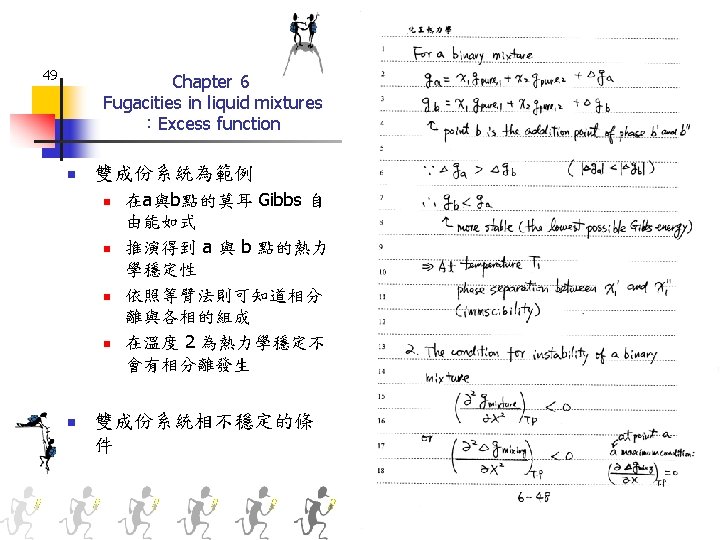 49
Chapter 6
Fugacities in liquid mixtures
：Excess function
雙成份系統為範例
在a與b點的莫耳 Gibbs 自
由能如式
推演得到 a 與 b 點的熱力
學穩定性
依照等臂法則可知道相分
離與各相的組成
在溫度 2 為熱力學穩定不
會有相分離發生
雙成份系統相不穩定的條
件
化工熱力學
1 For a binary mixture
2 g_a = x₁ g_pure,1 + x₂ g_pure,2 + Δg_a
3 g_b = x₁ g_pure,1 + x₂ g_pure,2 + Δg_b
4 point b is the addition point of phase b' and b"
5
6 ∵ Δg_a > Δg_b (|Δg_a| < |Δg_b|)
7 ∴ g_b < g_a
8 more stable (the lowest possible Gibbs energy)
9
10 ⇒ At temperature T₁
11 phase separation between x₁' and x₁"
12 (immscibility)
13 2. The condition for instability of a binary
14 mixture
15 (∂² g_mixture / ∂x²)_T,P < 0
16 or at point a
17 (∂² Δg_mixing / ∂x²)_T,P < 0 a maximum condition:
18 (∂Δg_mixing / ∂x)_T,P = 0
6-48